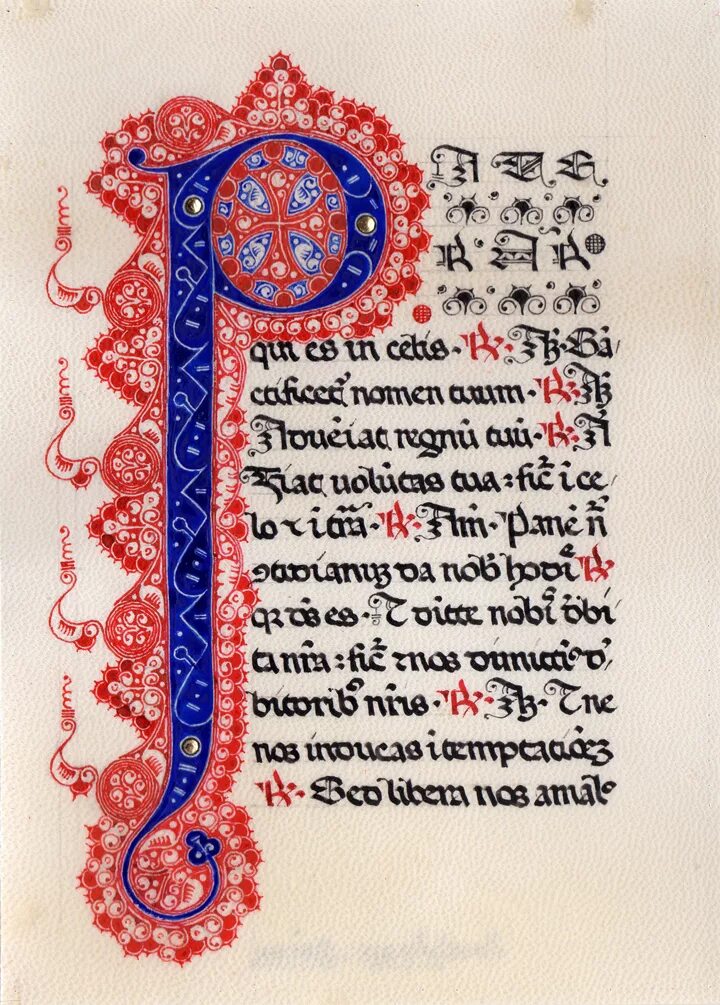 PATE
R · N̄R
qui es in celis · ℟ · Am · Sā
ctificet᷑ nomen tuum · ℟ Am
Aduēiat regnū tuū · ℟ A
Fiat uolūtas tua : sic̄ i ce
lo ⁊ i tr̄a · ℟ · Am̄ · Panē n̄
ꝯtidianuꝫ da nob̄ hodiē ℟
qr ds es · Et dimitte nobī debi
ta nr̄a : sic̄ ⁊ nos dimittiꝰ d'
bitoribꝰ nr̄is · ℟ · Am · Et ne
nos inducas i temptatiōeꝫ
℟ · Sed libera nos a malº